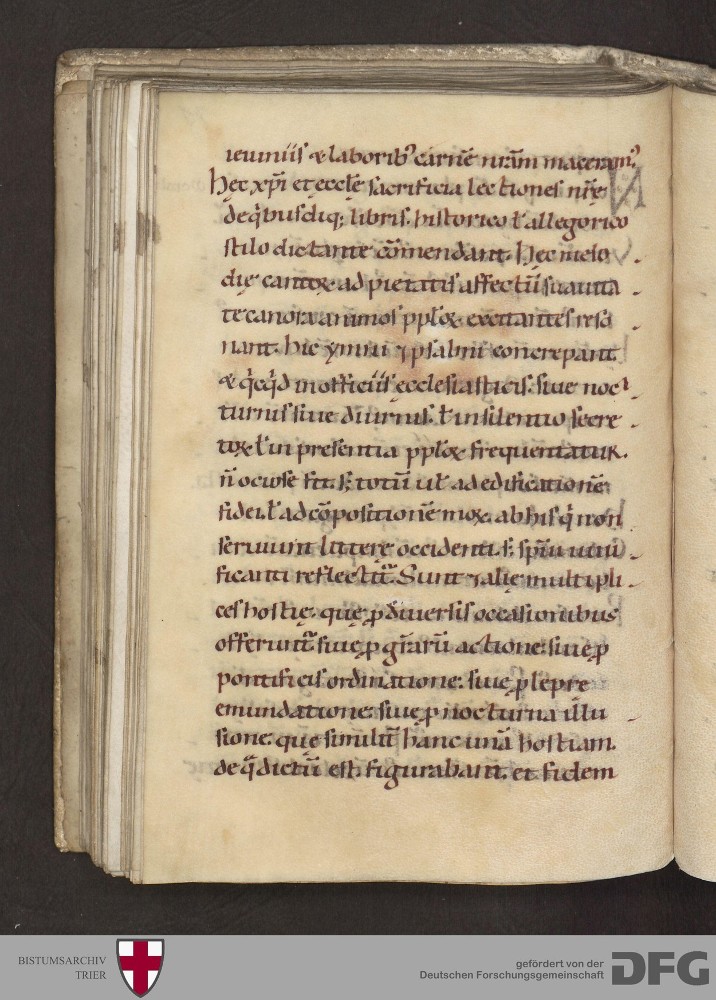 ieiuniis & laborib' carnē nrām maceram'.
Hęc xpi et ecclę sacrificia lectiones nrę
de q'busdiq; libris. historico ł allegorico
stilo dictante cōmendant. Hęc melo
dię cantoꝝ ad pietatis affectū suauita
te canora animos pploꝝ excitantes reso
nant. hic ymni ⁊ psalmi concrepant
& qicqid in officiis ecclesiasticis. siue noc
turnis siue diurnis. ł in silentio secre
toꝝ ł in presentia pploꝝ frequentatur.
n̄ ociose fit. s; totū ul' ad edificationē
fidei. ł ad cōpositionē moꝝ. ab his q̇ non
seruiunt litterę occidenti. s; spiū uiui
ficanti reflectit̄. Sunt ⁊ alię multipli
ces hostię. quę ꝓ diuersis occasionibus
offerunt̄. siue ꝓ grārū actione. siue ꝓ
pontificis ordinatione. siue ꝓ leprę
emundatione. siue ꝓ nocturna illu
sione. quę similit̄ hanc unā hostiam.
de qā dictū est. figurabant. et fidem
BISTUMSARCHIV
TRIER
gefördert von der
Deutschen Forschungsgemeinschaft
DFG